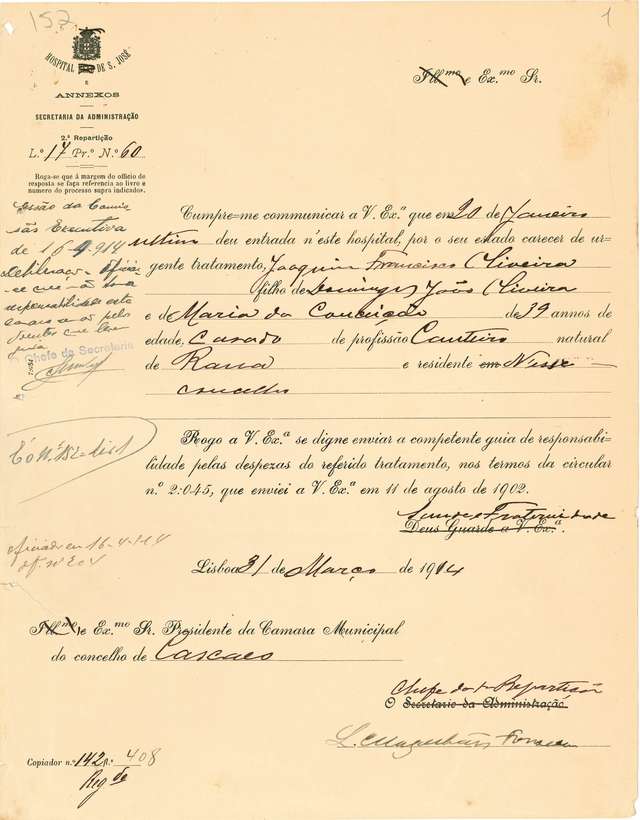 157
1
HOSPITAL DE S. JOSÉ
E
ANNEXOS
SECRETARIA DA ADMINISTRAÇÃO
2.ª Repartição
L.º 17 Pr.º N.º 60
Roga-se que á margem do officio de
resposta se faça referencia ao livro e
numero do processo supra indicados.
Ill.mo e Ex.mo Sr.
Sessão da Commis-
são Executiva
de 16-4-914
responsabilidade esta
Chefe da Secretaria
Cumpre-me communicar a V. Ex.ª que em 20 de Janeiro
ultimo deu entrada n'este hospital, por o seu estado carecer de ur-
gente tratamento, Joaquim Francisco Oliveira
filho de Domingos João Oliveira
e de Maria da Conceição de 39 annos de
edade, Casado de profissão Canteiro natural
de Rana e residente em Nesse
concelho
Rogo a V. Ex.ª se digne enviar a competente guia de responsabi-
lidade pelas despezas do referido tratamento, nos termos da circular
n.º 2:045, que enviei a V. Ex.ª em 11 de agosto de 1902.
Saude e Fraternidade
Deus Guarde a V. Ex.ª.
Officiado em 16-4-914
of. nº 204
Lisboa 31 de Março de 1914
Ill.mo e Ex.mo Sr. Presidente da Camara Municipal
do concelho de Cascaes
Chefe da Repartição
O Secretario da Administração
Copiador n.º 142 fl. 408
Reg.do